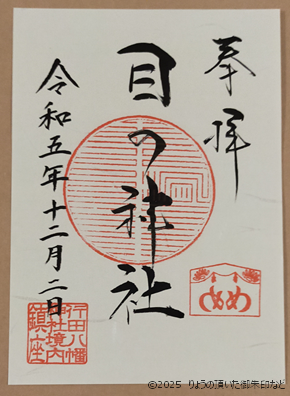 奉拝
目の神社
令和五年十二月二日
行田八幡
神社境内
鎮座
©2025 りょうの頂いた御朱印など